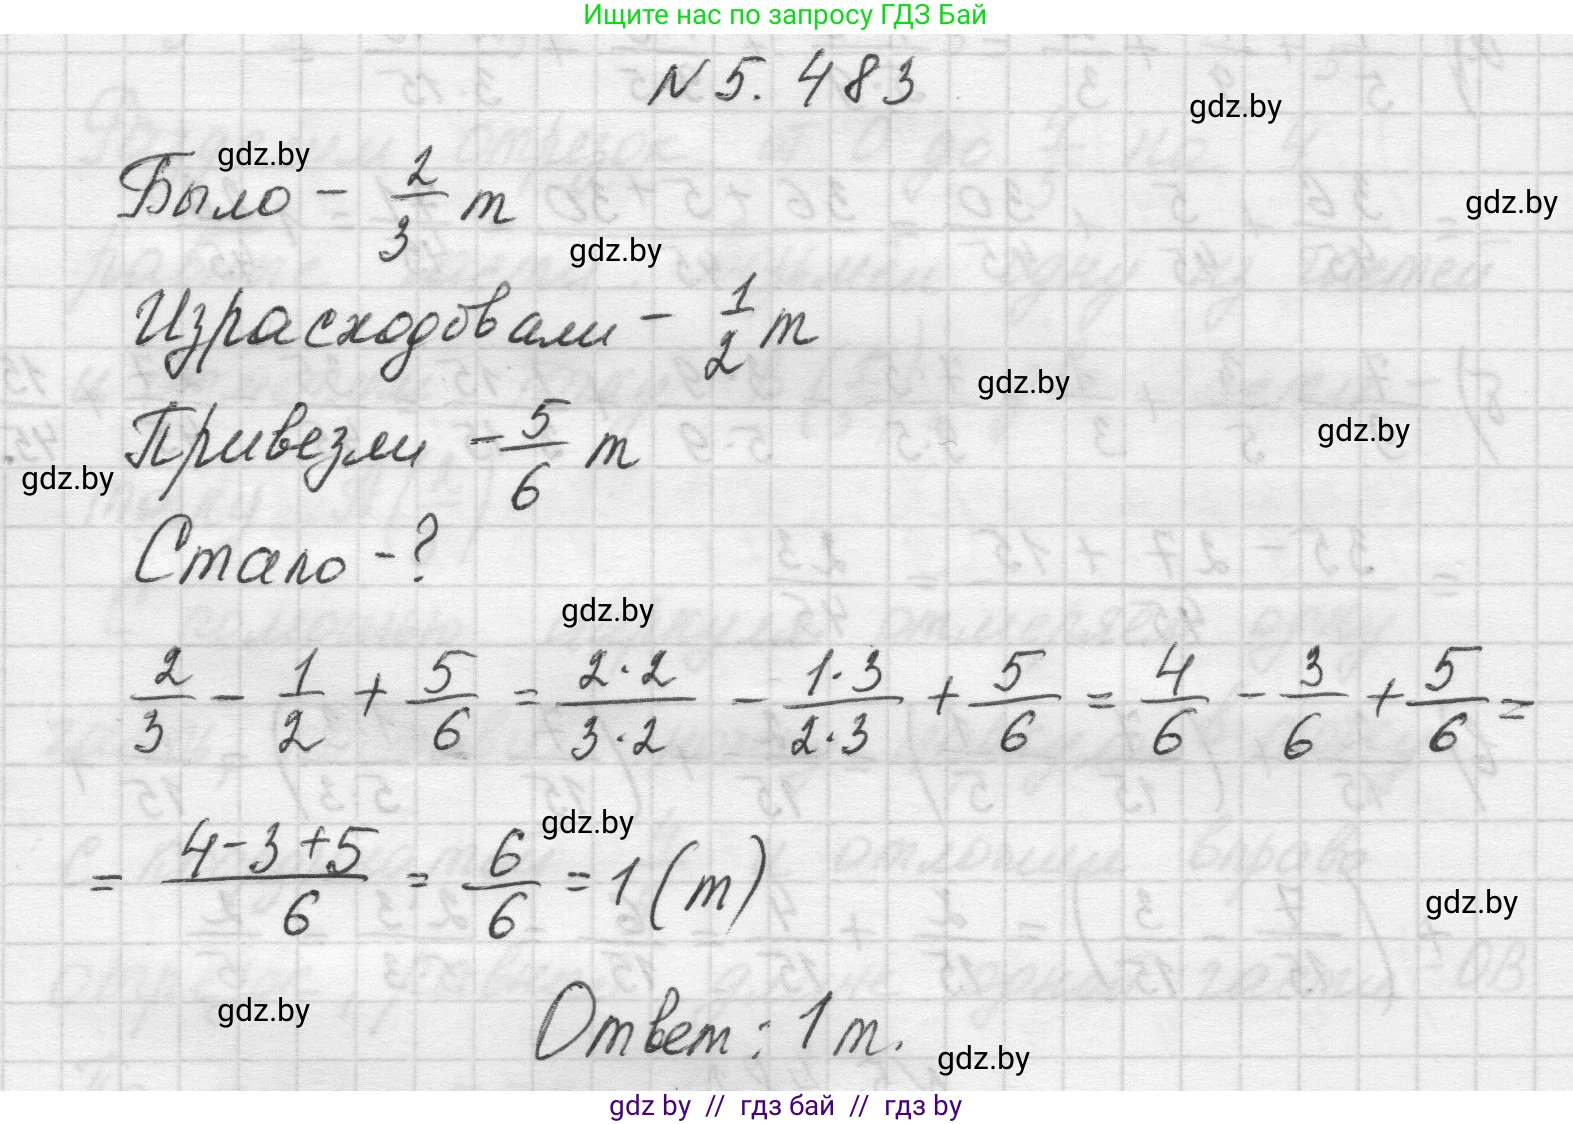 Ищите нас по запросу ГДЗ Бай
N 5. 483
gdz.by
gdz.by
Было - 2/3 т
gdz.by
gdz.by
Израсходовали - 1/2 т
gdz.by
gdz.by
Привезли - 5/6 т
gdz.by
Стало - ?
gdz.by
2/3 - 1/2 + 5/6 = 2·2/3·2 - 1·3/2·3 + 5/6 = 4/6 - 3/6 + 5/6 =
gdz.by
= 4-3+5/6 = 6/6 = 1 (т)
gdz.by
gdz.by
Ответ: 1 т.
gdz.by
gdz by // гдз бай // гдз by